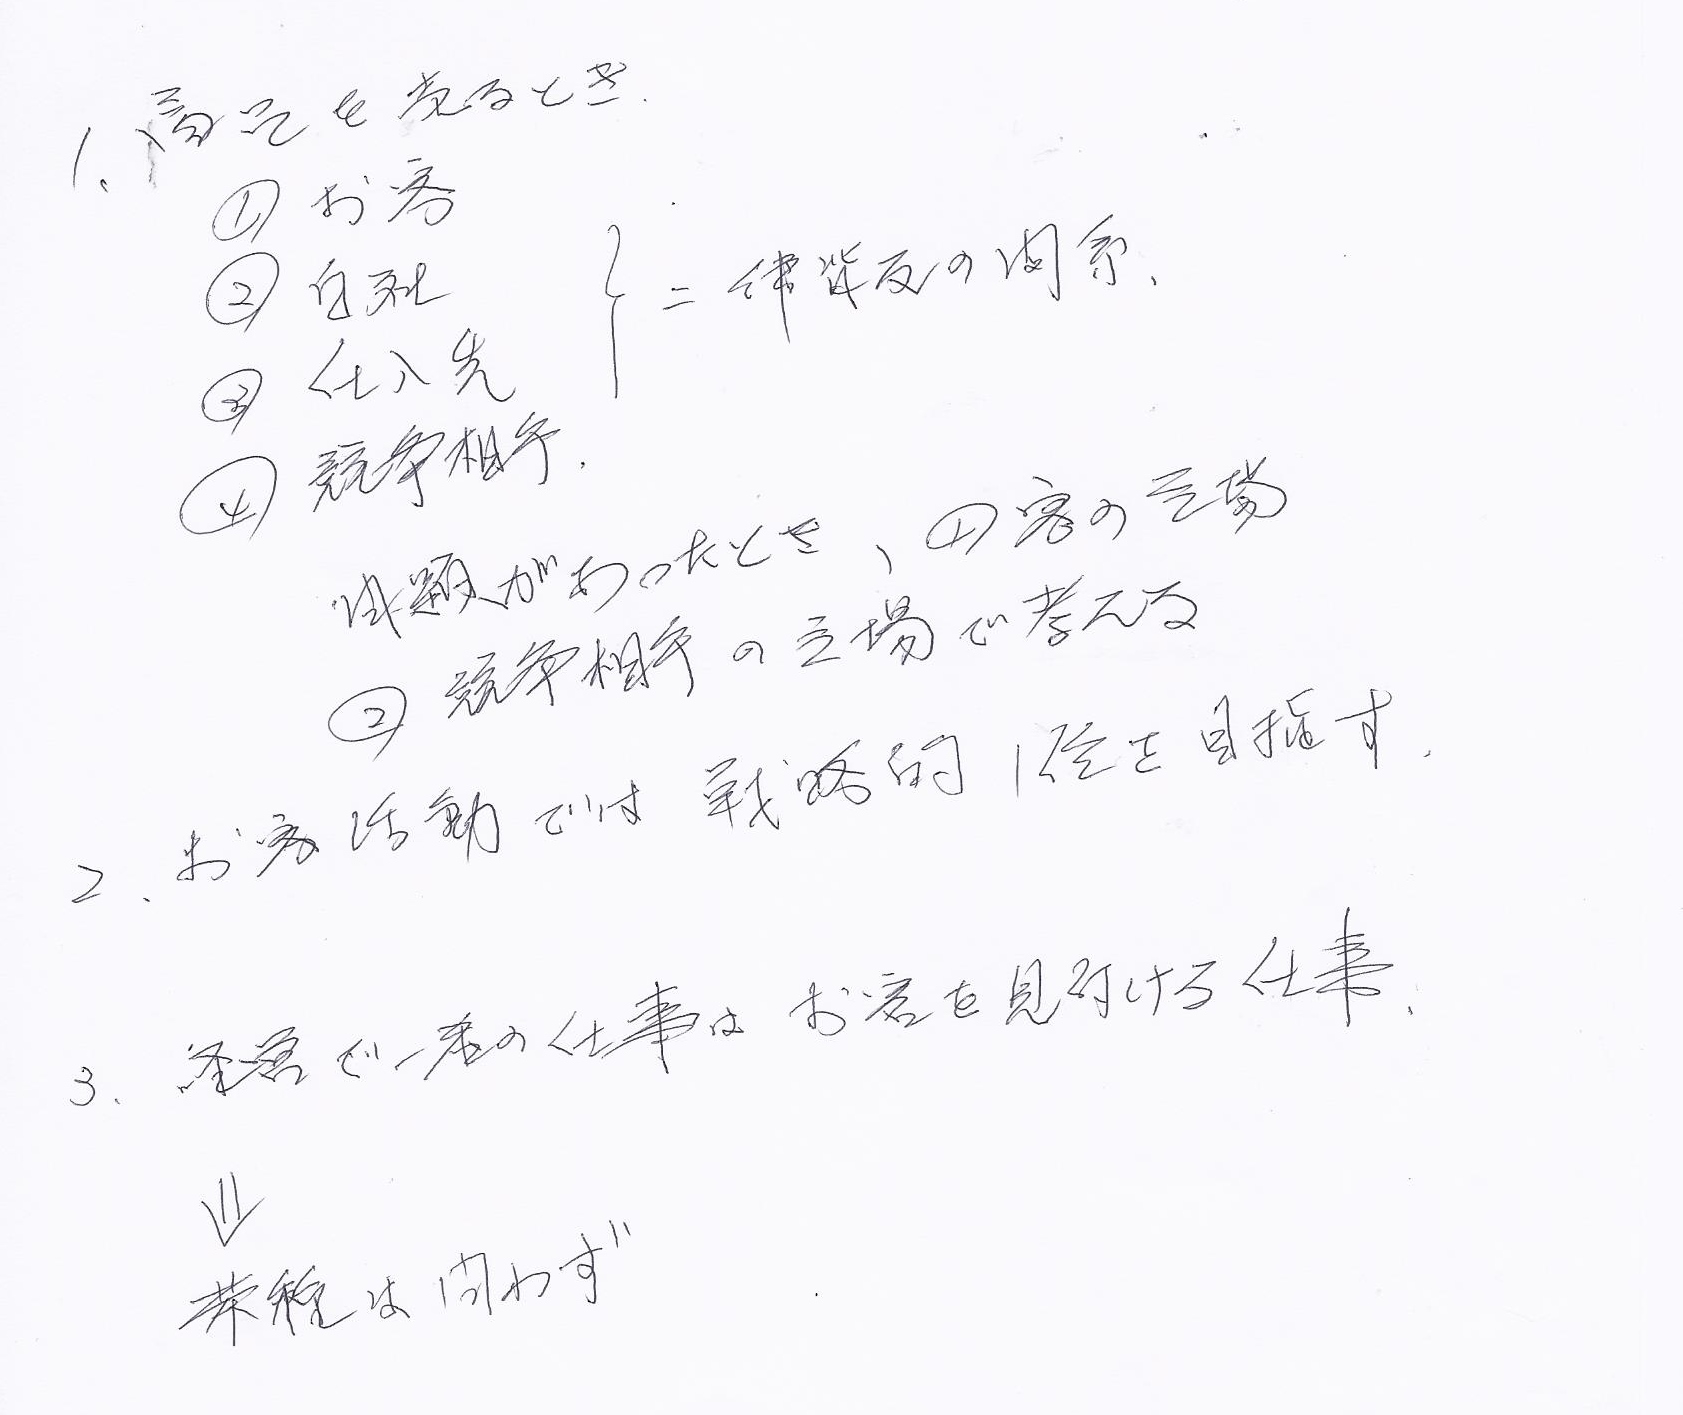 1. 商品を売るとき.
① お客
② 自社
③ 仕入先
④ 競争相手.
} 二律背反の関係.
問題があったとき、①客の立場
② 競争相手の立場で考える
2. お客活動では戦略的1位を目指す.
3. 経営で一番の仕事はお客を見付ける仕事.
⇓
業種は問わず